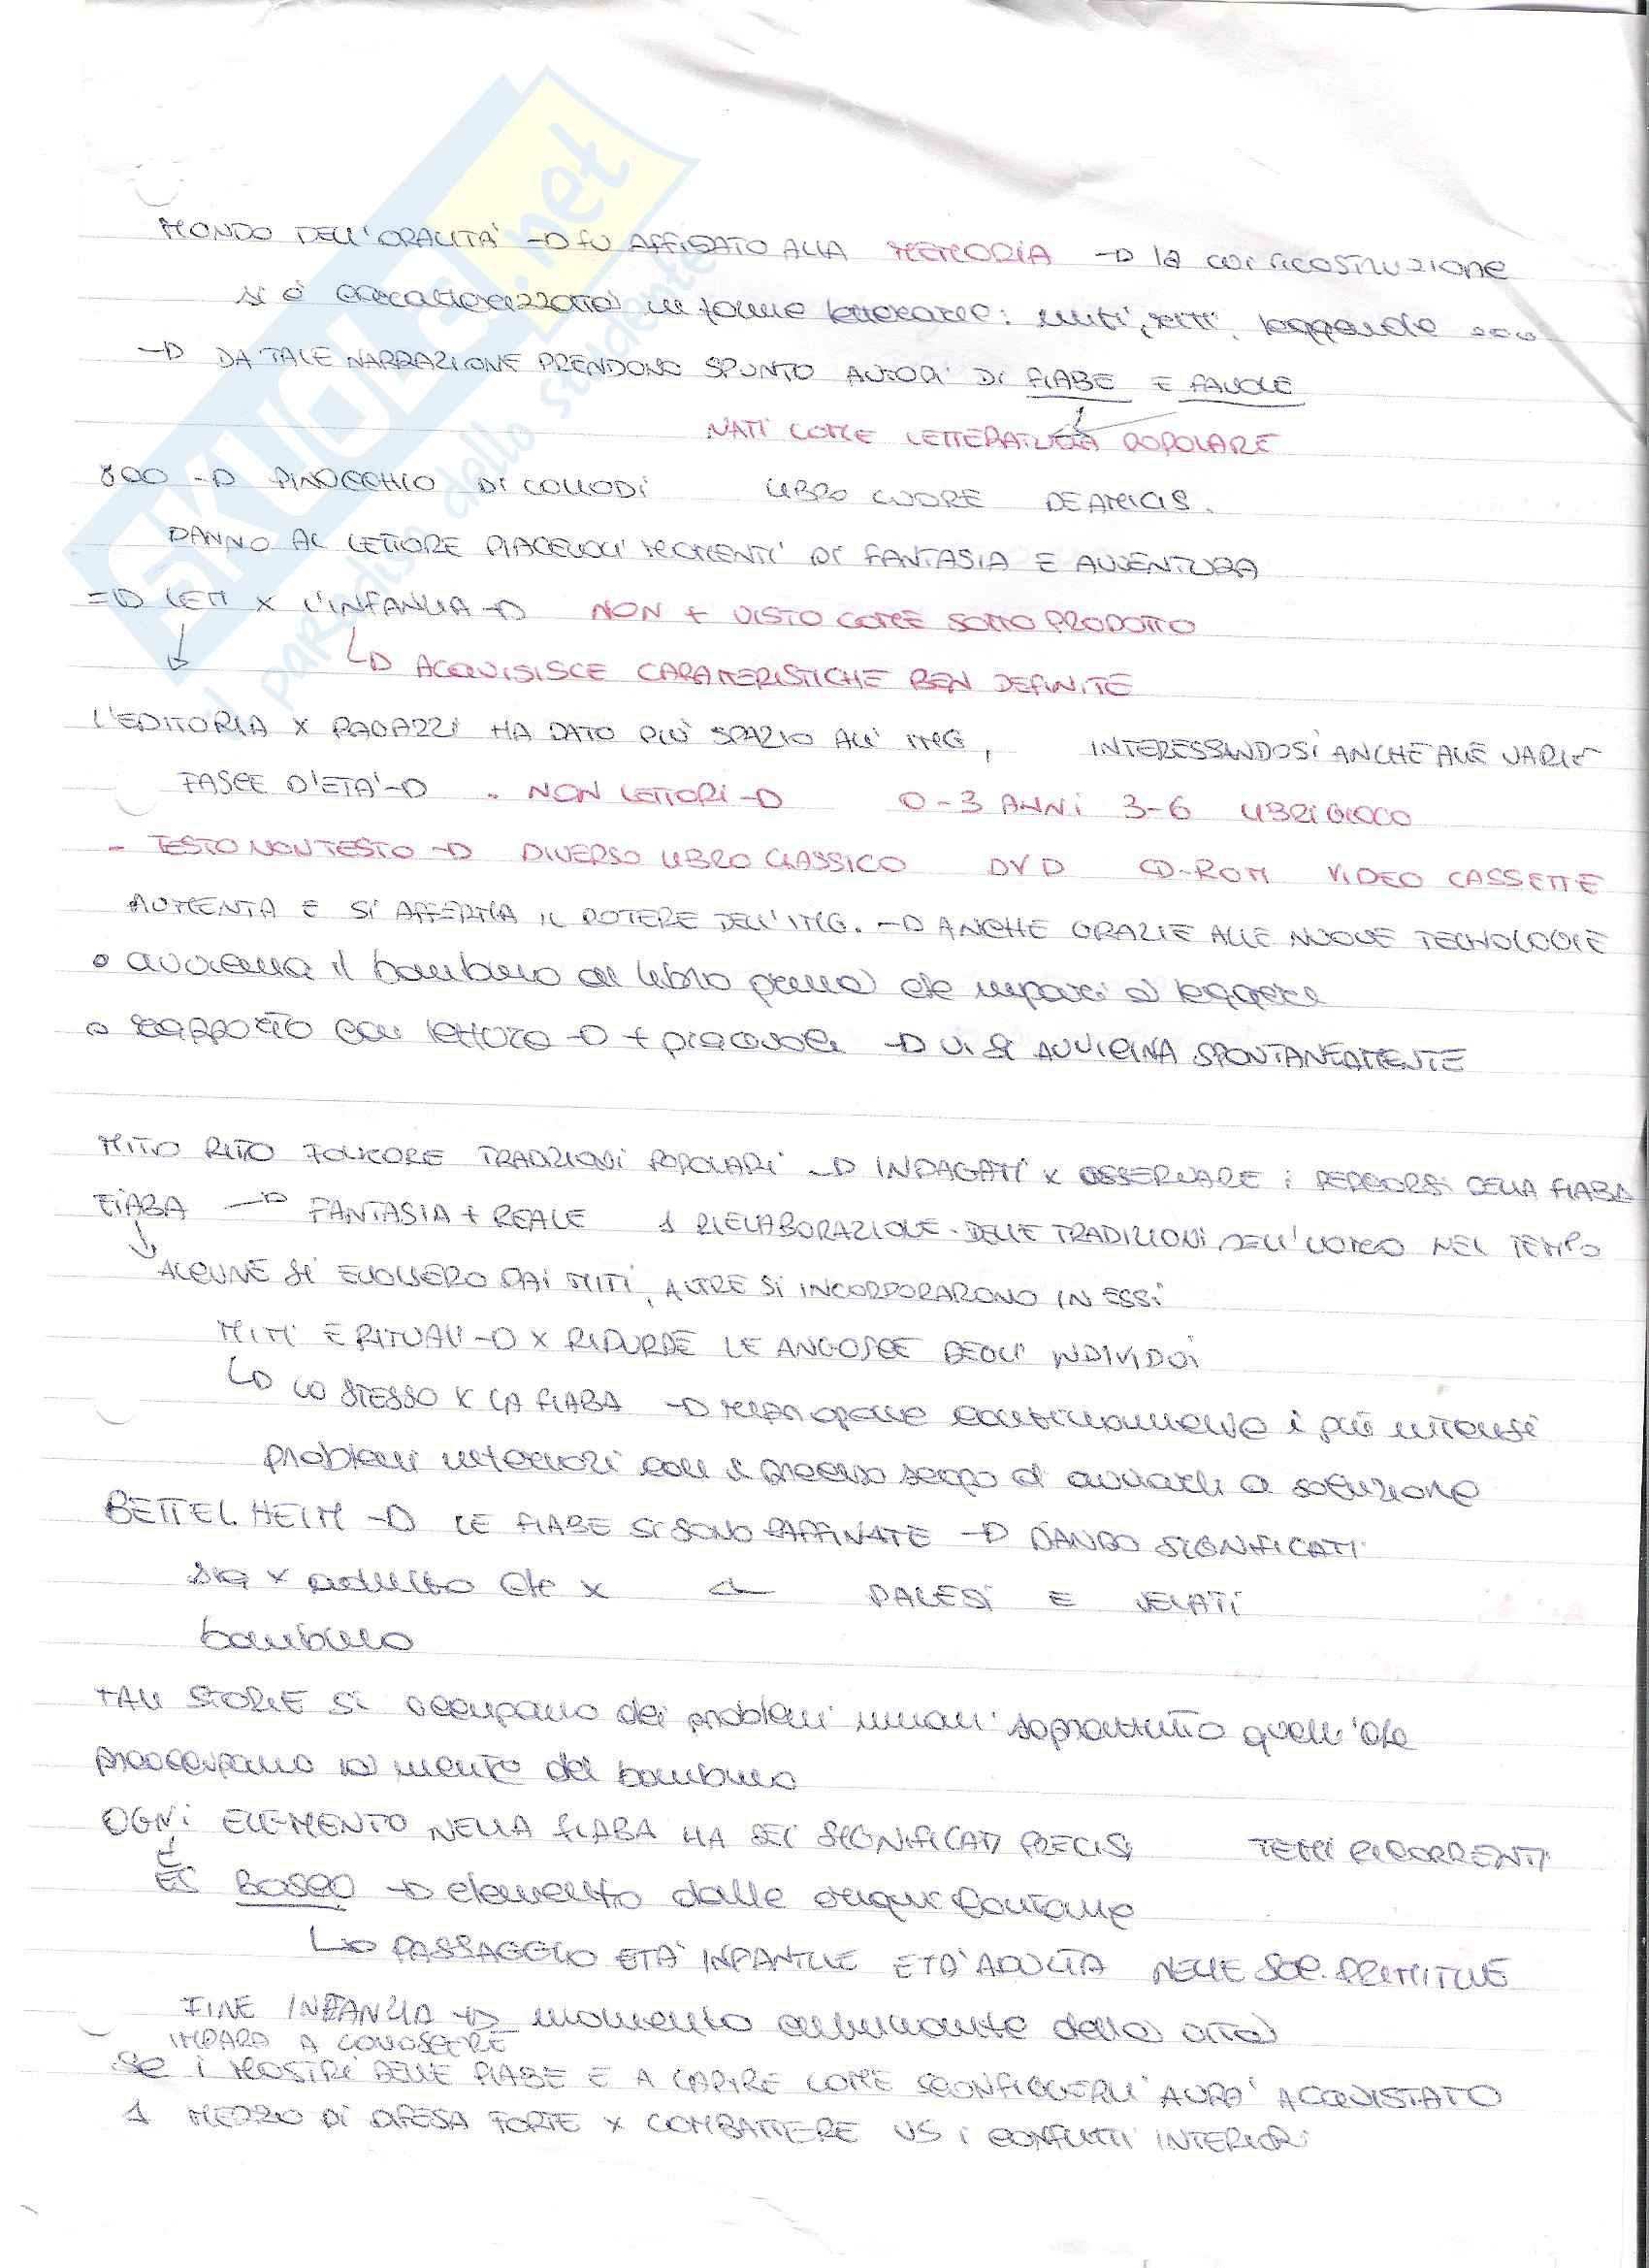 MONDO DELL'ORALITA' → fu AFFIDATO ALLA MEMORIA → la cui ricostruzione
si è caratterizzata in forme letterarie: miti, riti, leggende ...
→ DA TALE NARRAZIONE PRENDONO SPUNTO AUTORI DI FIABE E FAVOLE
NATI COME LETTERATURA POPOLARE
800 → PINOCCHIO DI COLLODI LIBRO CUORE DE AMICIS.
DANNO AL LETTORE PIACEVOLI MOMENTI DI FANTASIA E AVVENTURA
=> LETT X L'INFANZIA → NON + VISTO COME SOTTO PRODOTTO
↳ ACQUISISCE CARATTERISTICHE BEN DEFINITE
L'EDITORIA X RAGAZZI HA DATO PIÙ SPAZIO ALL' IMG, INTERESSANDOSI ANCHE ALLE VARIE
FASCE D'ETA' → - NON LETTORI → 0-3 ANNI 3-6 LIBRI GIOCO
- TESTO NON TESTO → DIVERSO LIBRO CLASSICO DVD CD-ROM VIDEO CASSETTE
AUMENTA E SI AFFERMA IL POTERE DELL'IMG. → ANCHE GRAZIE ALLE NUOVE TECNOLOGIE
• avvicina il bambino al libro prima che impari a leggere
• rapporto con lettura → + piacevole → VI SI AVVICINA SPONTANEAMENTE
MITO RITO FOLKORE TRADIZIONI POPOLARI → INDAGATI X OSSERVARE I PERCORSI DELLA FIABA
FIABA → FANTASIA + REALE 1 RIELABORAZIONE DELLE TRADIZIONI DELL'UOMO NEL TEMPO
↳ ALCUNE SI EVOLSERO DAI MITI, ALTRE SI INCORPORARONO IN ESSI
MITI E RITUALI → X RIDURRE LE ANGOSCE DEGLI INDIVIDUI
↳ LO STESSO X LA FIABA → ripropone continuamente i più intensi
problemi interiori con il preciso scopo di avviarli a soluzione
BETTELHEIM → LE FIABE SI SONO RAFFINATE → DANDO SIGNIFICATI
sia x adulto che x ← PALESI E VELATI
bambino
TALI STORIE SI occupano dei problemi umani soprattutto quelli che
preoccupano la mente del bambino
OGNI ELEMENTO NELLA FIABA HA DEI SIGNIFICATI PRECISI TEMI RICORRENTI
ES BOSCO → elemento dalle origini lontane
↳ PASSAGGIO ETA' INFANTILE ETA' ADULTA NELLE SOC. PRIMITIVE
FINE INFANZIA → momento culminante della
IMPARA A CONOSCERE
Se I MOSTRI DELLE FIABE E A CAPIRE COME SCONFIGGERLI AVRA' ACQUISTATO
1 MEZZO DI DIFESA FORTE X COMBATTERE VS I CONFLITTI INTERIORI
SKUOLA.net
il paradiso dello studente